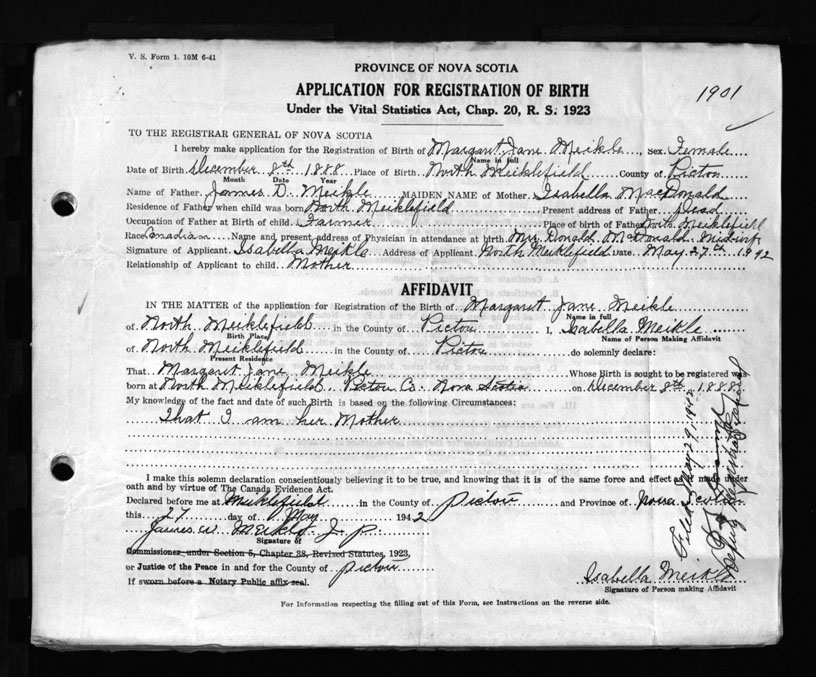 V. S. Form 1. 10M 6-41
PROVINCE OF NOVA SCOTIA
APPLICATION FOR REGISTRATION OF BIRTH
1901
Under the Vital Statistics Act, Chap. 20, R. S. 1923
TO THE REGISTRAR GENERAL OF NOVA SCOTIA
I hereby make application for the Registration of Birth of Margaret Jane Meikle, sex Female
Name in full
Date of Birth December 8th 1888 Place of Birth North Meiklefield County of Pictou
Month Date Year
Name of Father James D. Meikle MAIDEN NAME of Mother Isabella MacDonald
Residence of Father when child was born North Meiklefield Present address of Father Dead
Occupation of Father at Birth of child Farmer Place of birth of Father North Meiklefield
Race Canadian Name and present address of Physician in attendance at birth Mrs Donald McDonald Midwife
Signature of Applicant Isabella Meikle Address of Applicant North Meiklefield Date May 27th 1942
Relationship of Applicant to child Mother
AFFIDAVIT
IN THE MATTER of the application for Registration of the Birth of Margaret Jane Meikle
Name in full
of North Meiklefield in the County of Pictou I, Isabella Meikle
Birth Place Name of Person Making Affidavit
of North Meiklefield in the County of Pictou do solemnly declare:
Present Residence
That Margaret Jane Meikle Whose Birth is sought to be registered was
born at North Meiklefield, Pictou Co. Nova Scotia on December 8th, 1888
My knowledge of the fact and date of such Birth is based on the following Circumstances:
That I am her Mother
I make this solemn declaration conscientiously believing it to be true, and knowing that it is of the same force and effect as if made under
oath and by virtue of The Canada Evidence Act.
Declared before me at Meiklefield in the County of Pictou and Province of Nova Scotia
this 27 day of May 1942
James W Meikle J. P.
Signature of
Commissioner under Section 5, Chapter 38, Revised Statutes, 1923,
or Justice of the Peace in and for the County of Pictou
If sworn before a Notary Public affix seal.
Isabella Meikle
Signature of Person making Affidavit
For Information respecting the filling out of this Form, see Instructions on the reverse side.
Filed May 29, 1942
Deputy Registrar General